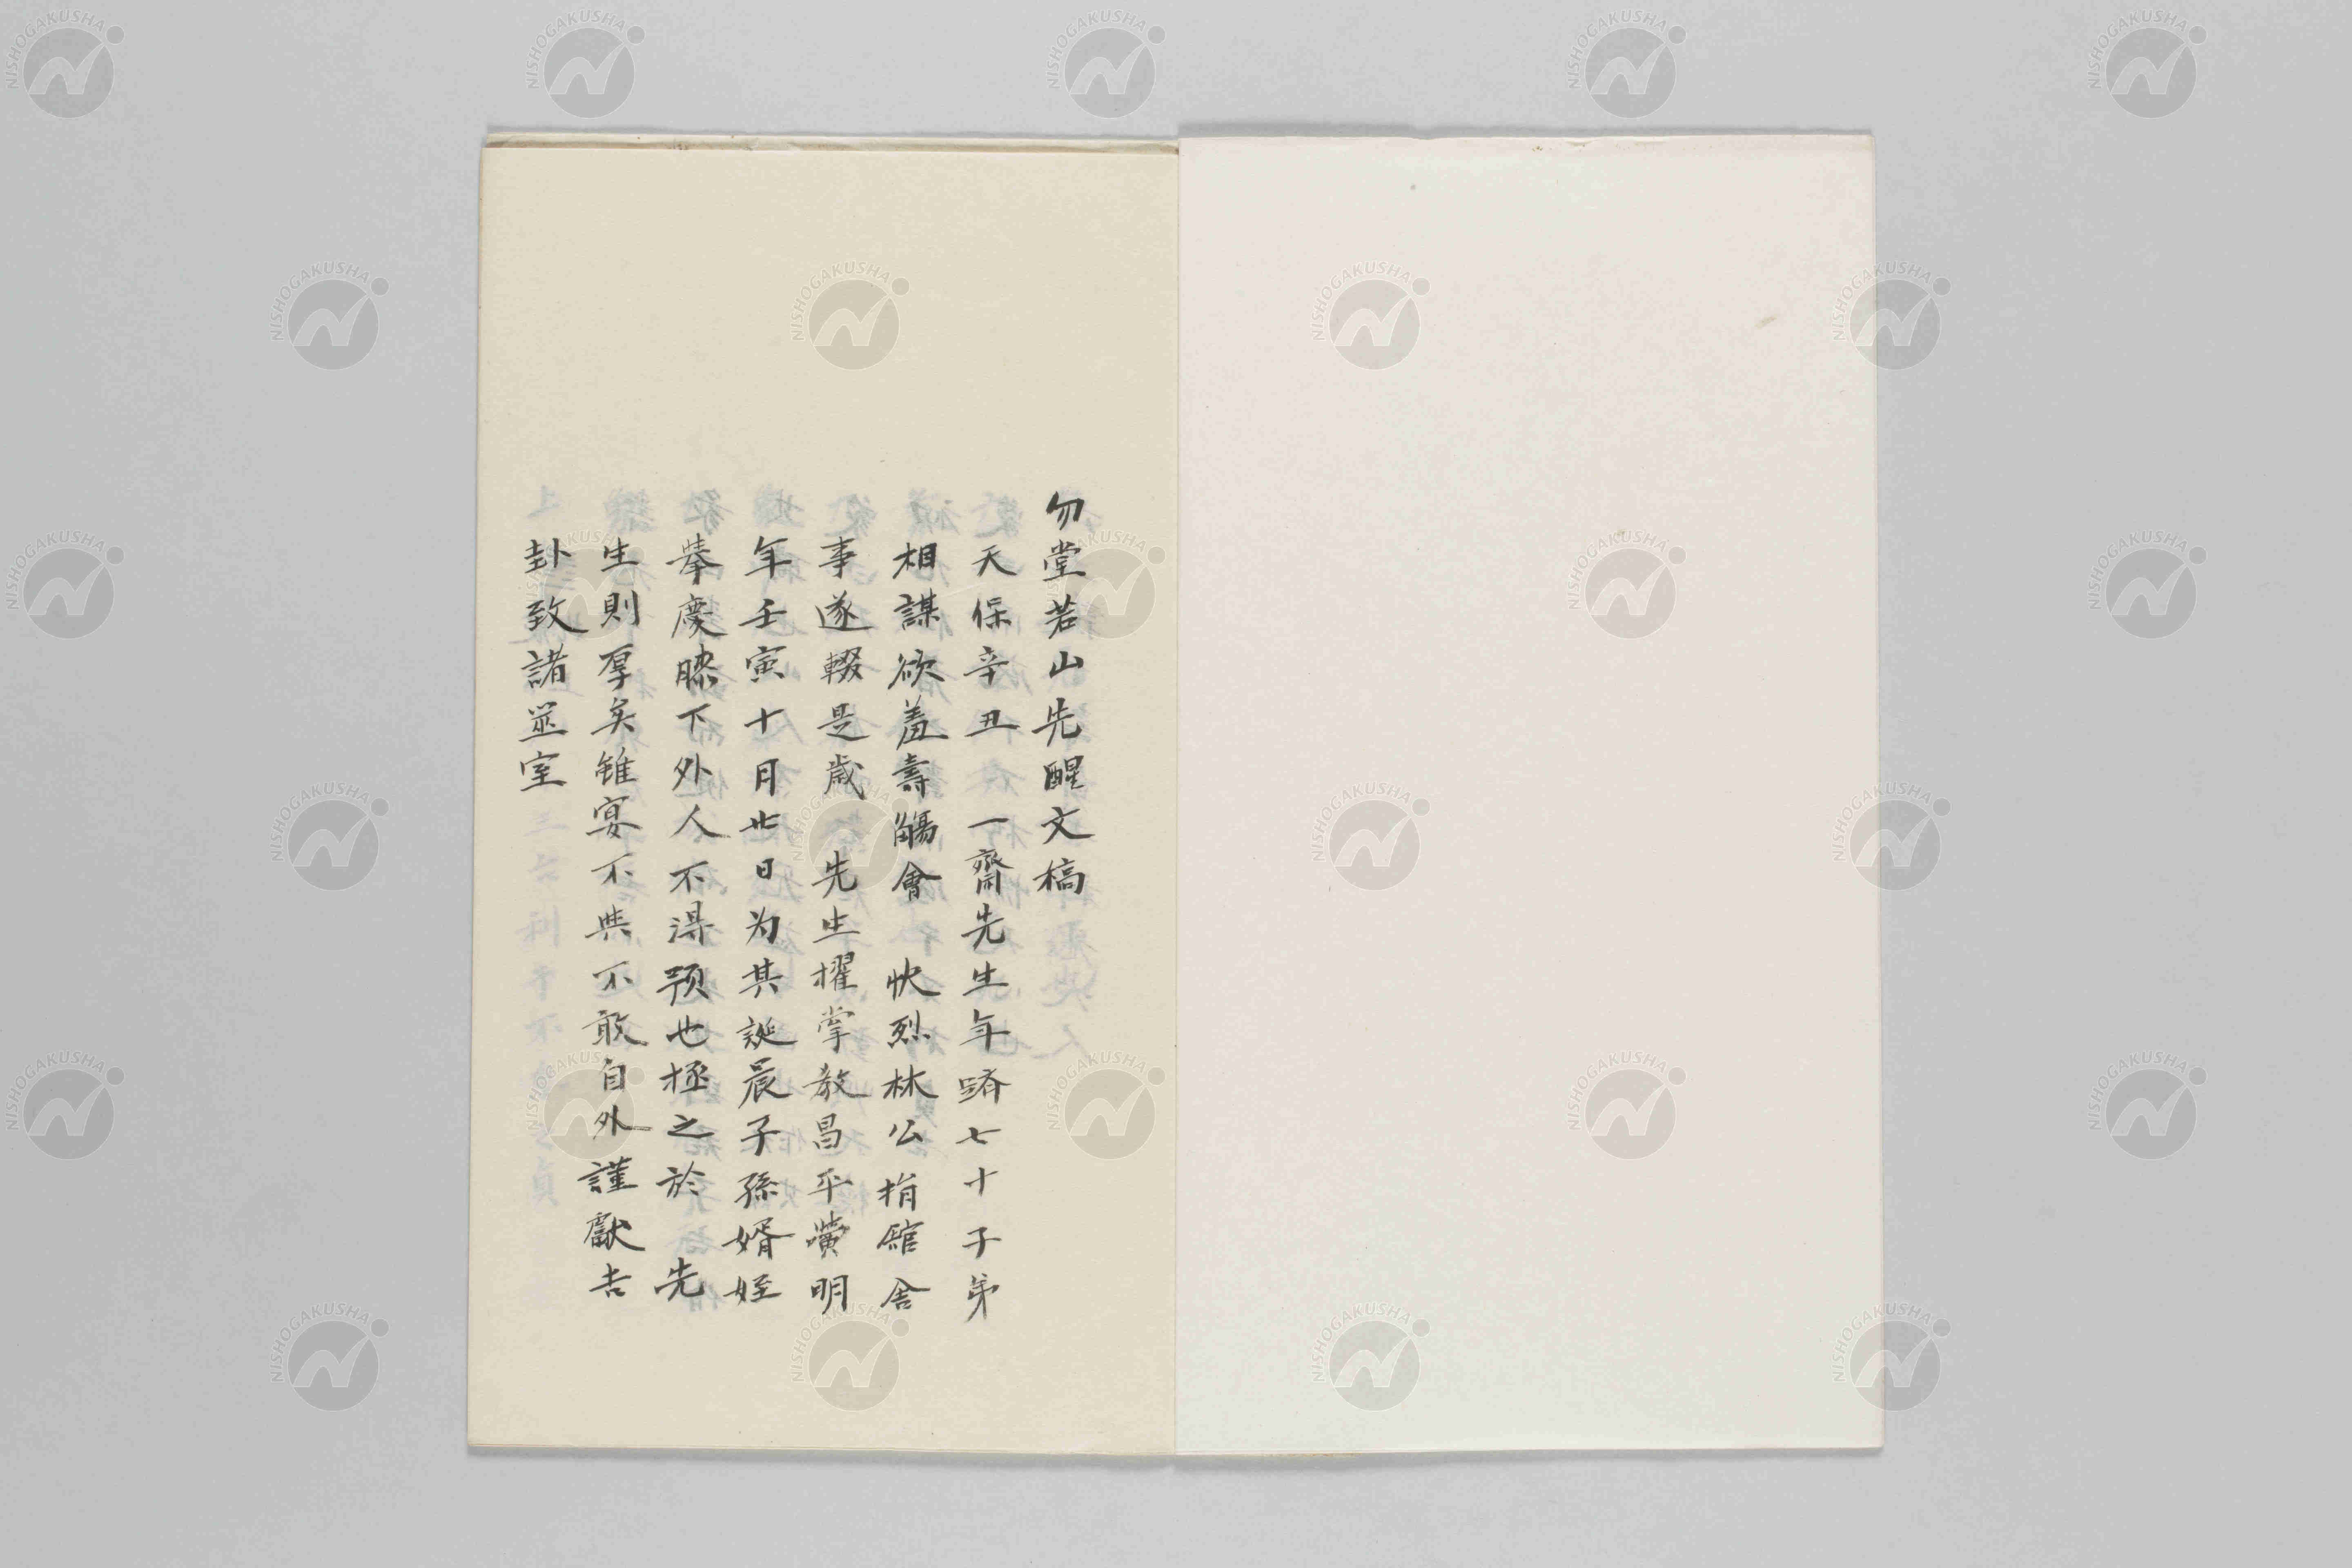 勿堂若山先醒文稿
天保辛丑　一齋先生年躋七十子弟
相謀欲羞壽觴會　快烈林公捐館舍
事遂輟是歳　先生擢掌教昌平黌明
年壬寅十月廿日为其誕辰子孫婿姪
舉慶膝下外人不得预也極之於　先
生則厚矣雖宴不與不敢自外謹獻吉
卦致諸筮室
NISHOGAKUSHA